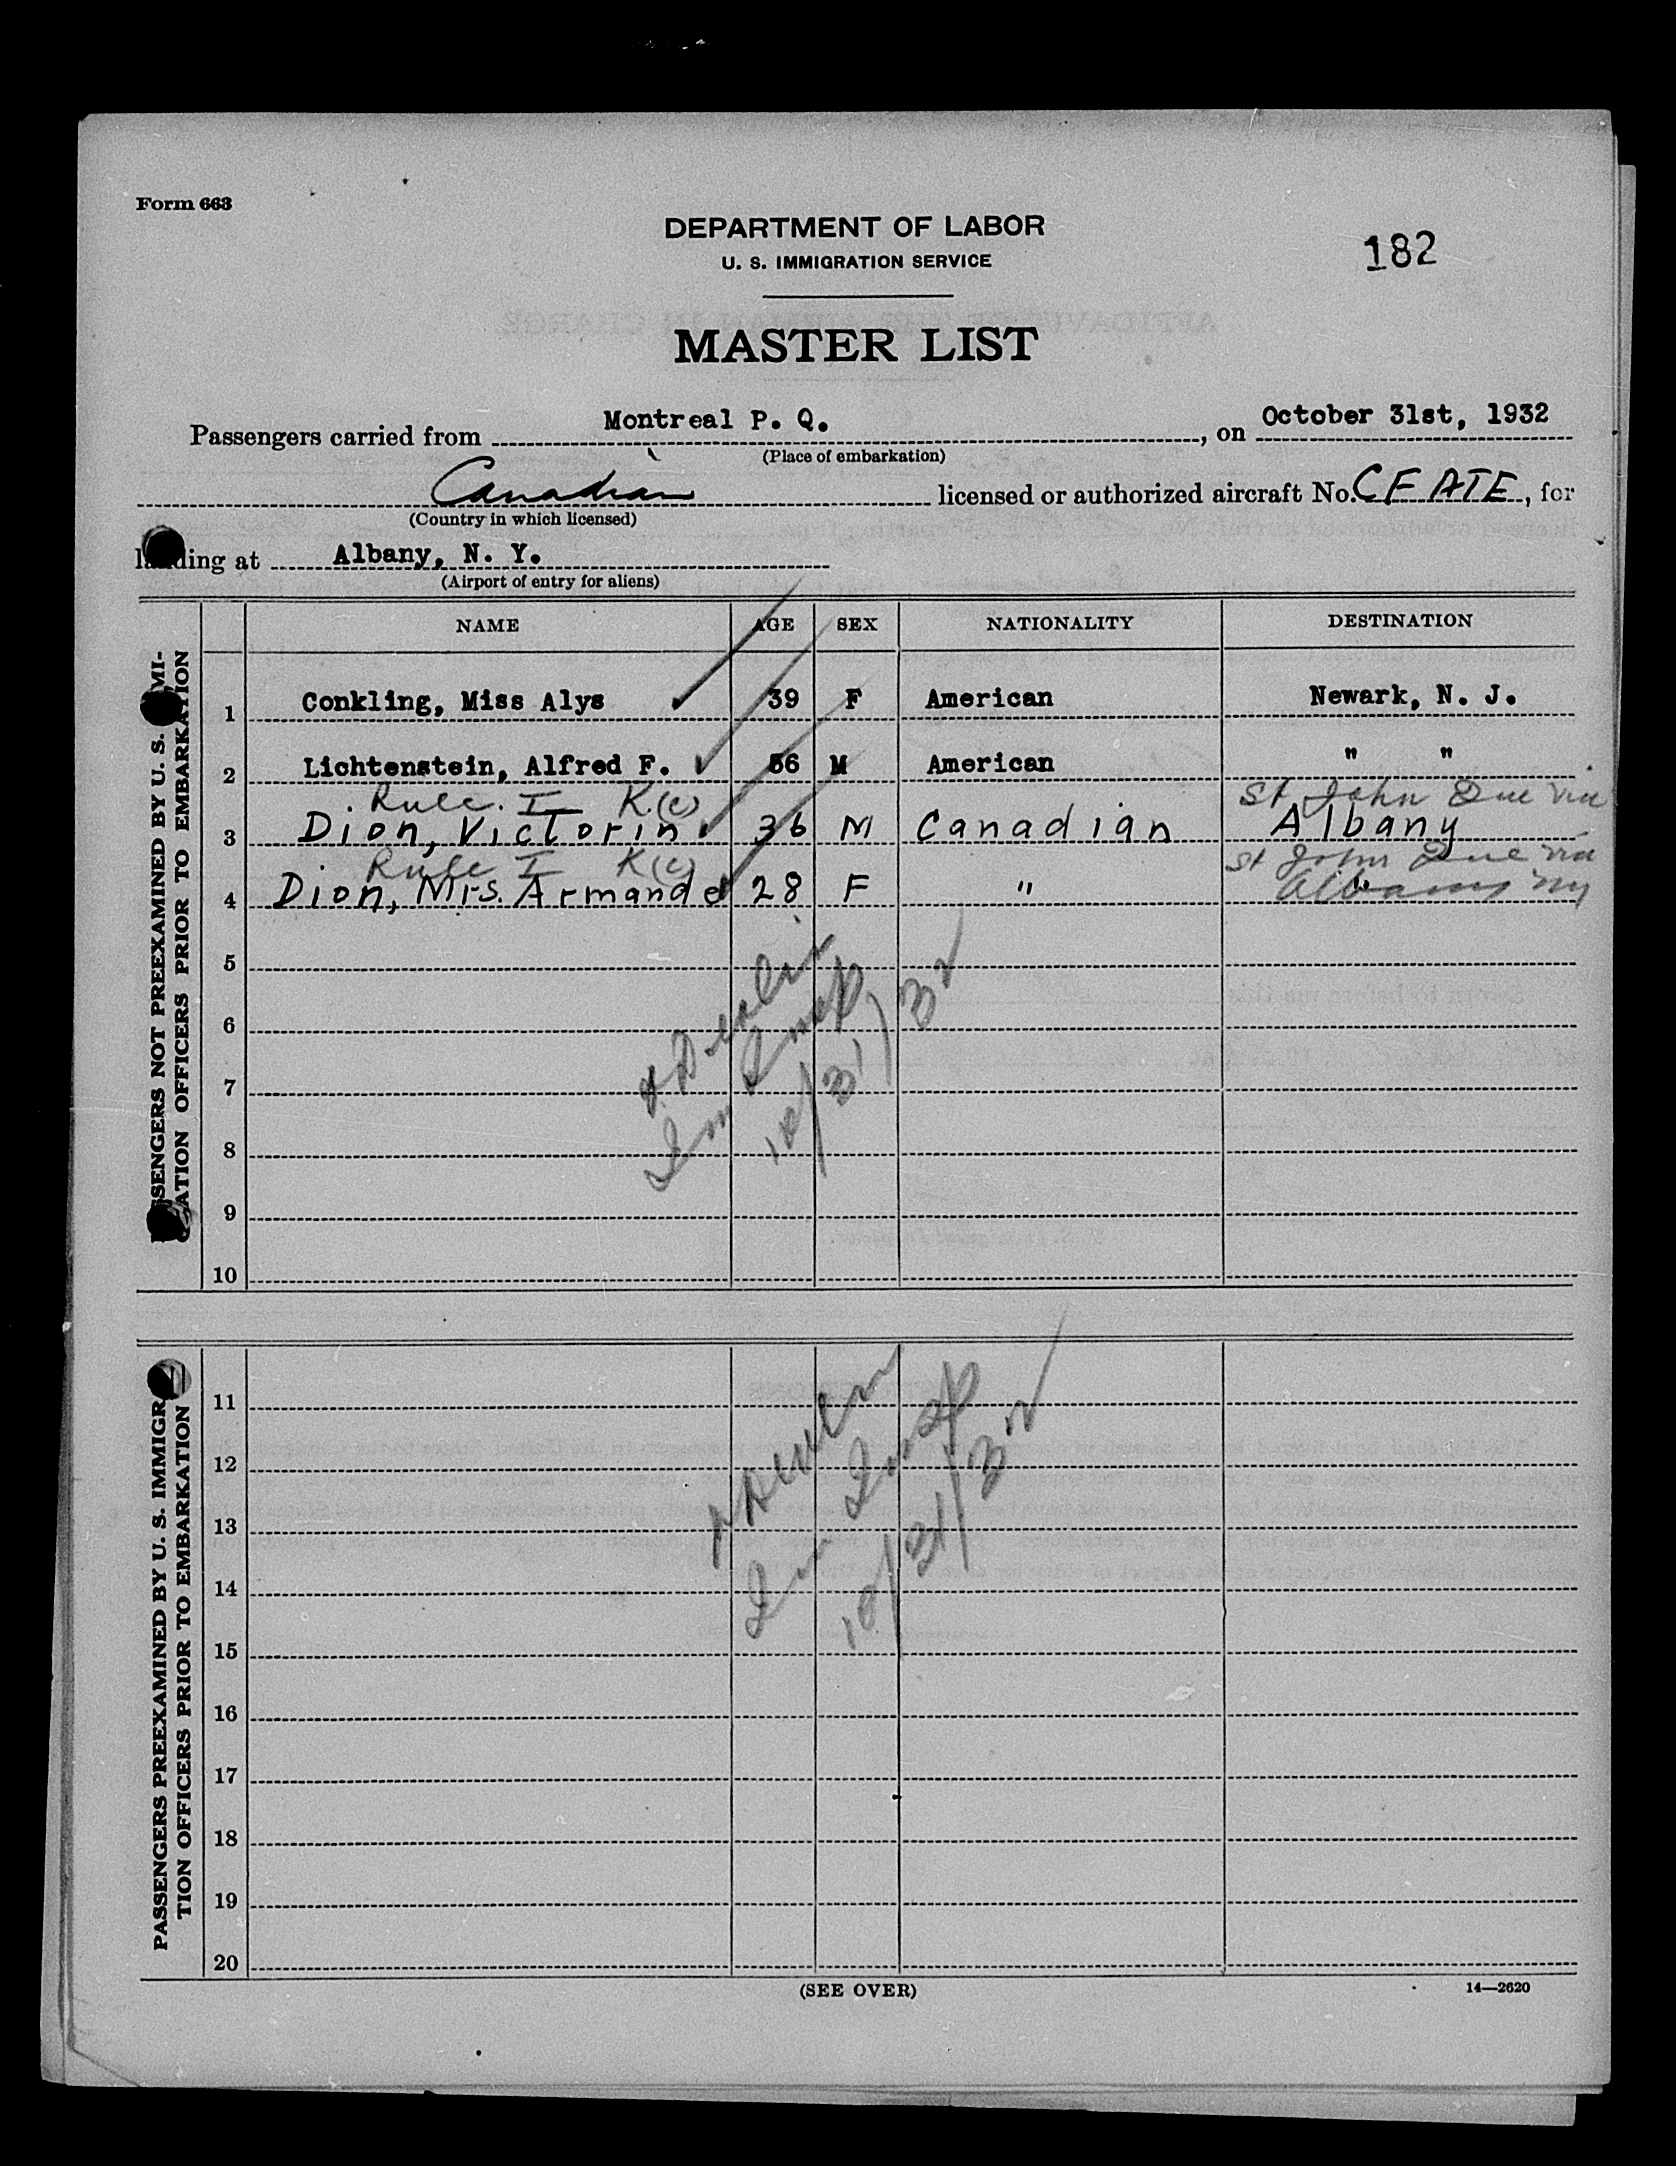 Form 663
DEPARTMENT OF LABOR
U. S. IMMIGRATION SERVICE
182
MASTER LIST
Passengers carried from Montreal P. Q., on October 31st, 1932
(Place of embarkation)
Canadian licensed or authorized aircraft No. CF ATE, for
(Country in which licensed)
landing at Albany, N. Y.
(Airport of entry for aliens)
NAME AGE SEX NATIONALITY DESTINATION
1 Conkling, Miss Alys 39 F American Newark, N. J.
2 Lichtenstein, Alfred F. 56 M American " "
Rule I K(c) St John Que via
3 Dion, Victorin 36 M Canadian Albany
Rule I K(c) St John Que via
4 Dion, Mrs. Armande 28 F " " Albany NY
5
6
7
8
9
10
Imm Insp
10/31/32
PASSENGERS NOT PREEXAMINED BY U. S. IMMI-
GRATION OFFICERS PRIOR TO EMBARKATION
11
12
13
14
15
16
17
18
19
20
Imm Insp
10/31/32
PASSENGERS PREEXAMINED BY U. S. IMMIGRA-
TION OFFICERS PRIOR TO EMBARKATION
(SEE OVER)
14—2620